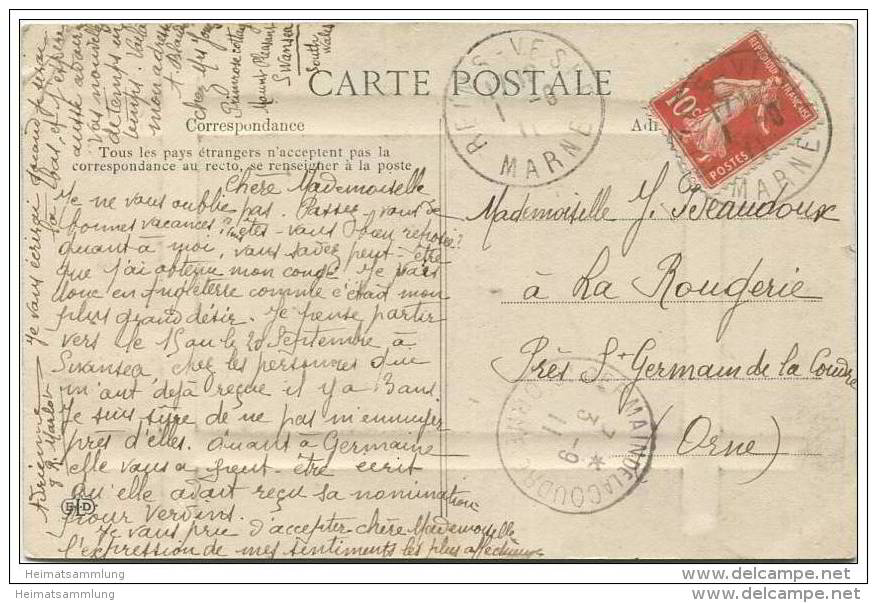 CARTE POSTALE
Correspondance
Tous les pays étrangers n'acceptent pas la
correspondance au recto, se renseigner à la poste
Chère Mademoiselle
Je ne vous oublie pas. Passez-vous de
bonnes vacances, êtes-vous bien reposée?
Quant à moi, vous savez peut-être
que j'ai obtenu mon congé. Je vais
donc en Angleterre comme c'était mon
plus grand désir. Je pense partir
vers le 15 au le 20 Septembre à
Swansea chez les personnes que
m'ont déjà reçue il y a 3 ans.
Je suis sûre de ne pas m'ennuyer
près d'elles. Quant à Germaine
elle vous a peut-être écrit
qu'elle avait reçu sa nomination
pour Verdun.
Je vous prie d'accepter chère Mademoiselle
l'expression de mes sentiments les plus affectueux
Adrienne
Je vous écrirai quand je serai
là bas, et j'espère
aussi avoir
vos nouvelles
de temps en
temps. Voilà
mon adresse
Primrose cottage
Mount Pleasant
Swansea
South
Wales
REIMS-VESLE
MARNE
10c
REPUBLIQUE FRANÇAISE
POSTES
MARNE
Mademoiselle Y. Beaudoux
à La Rougerie
Près St Germain de la Coudre
(Orne)
GERMAIN DE LA COUDRE
ORNE
7
3 -9
11
ELD
Heimatsammlung
Heimatsammlung
www.delcampe.net
www.delcampe.net